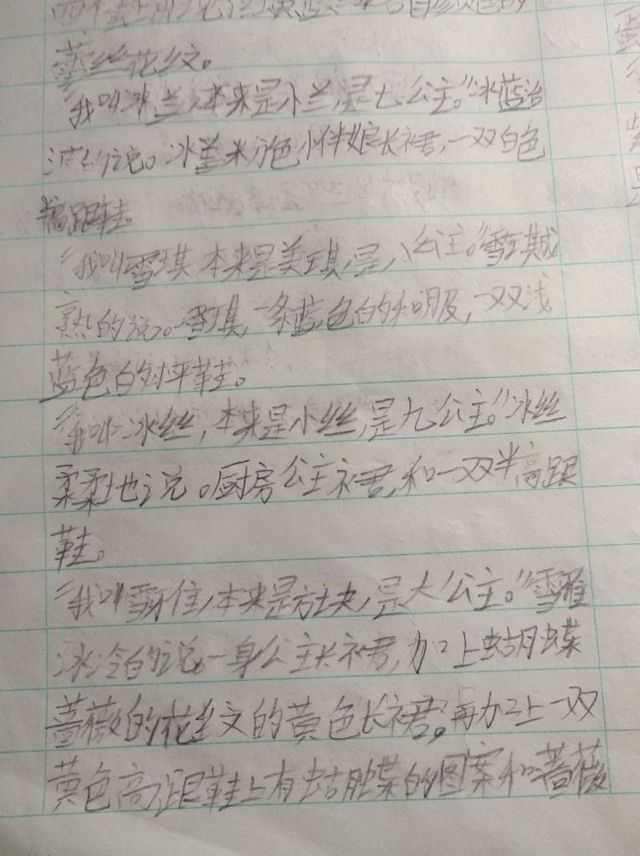 蕾丝花纹。
“我叫冰兰,本来是小兰,是七公主。”冰蓝治
的说。冰蓝米分色小伴娘长裙,一双白色
高跟鞋。
“我叫雪琪本来是美琪,是八公主。”雪琪成
熟的说。雪琪,一条蓝色的和服,一双浅
蓝色的对平鞋。
“我叫冰丝,本来是小丝,是九公主。”冰丝
柔柔地说。厨房公主裙,和一双半高跟
鞋。
“我叫雪,本来是,是大公主。”雪
冰冷的说。一身公主长裙,加上蝴蝶
蔷薇的花纹的黄色长裙,再加上一双
黄色高跟鞋上有蝴蝶的图案和蔷薇